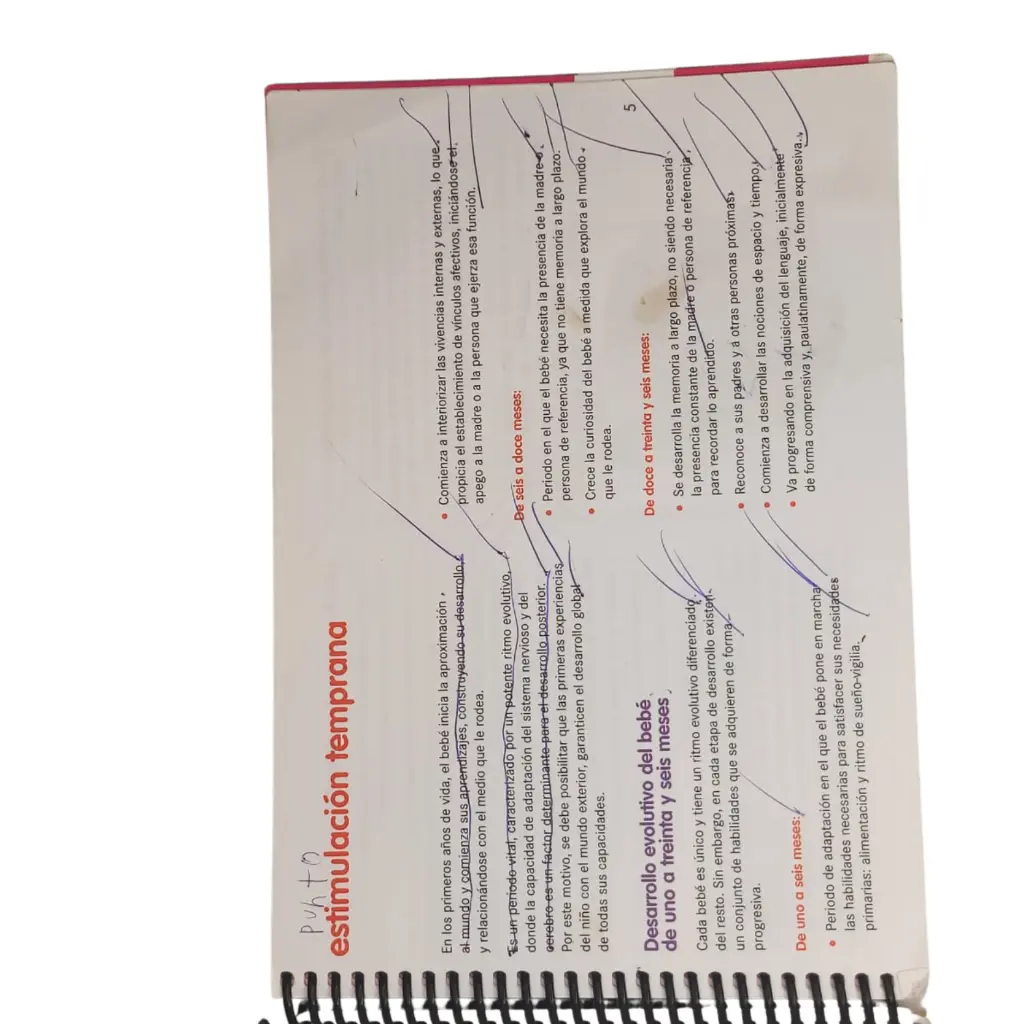 punto
estimulación temprana
En los primeros años de vida, el bebé inicia la aproximación
al mundo y comienza sus aprendizajes, construyendo su desarrollo,
y relacionándose con el medio que le rodea.
Es un periodo vital, caracterizado por un potente ritmo evolutivo,
donde la capacidad de adaptación del sistema nervioso y del
cerebro es un factor determinante para el desarrollo posterior.
Por este motivo, se debe posibilitar que las primeras experiencias
del niño con el mundo exterior, garanticen el desarrollo global
de todas sus capacidades.
Desarrollo evolutivo del bebé
de uno a treinta y seis meses
Cada bebé es único y tiene un ritmo evolutivo diferenciado
del resto. Sin embargo, en cada etapa de desarrollo existen
un conjunto de habilidades que se adquieren de forma
progresiva.
De uno a seis meses:
• Periodo de adaptación en el que el bebé pone en marcha
las habilidades necesarias para satisfacer sus necesidades
primarias: alimentación y ritmo de sueño-vigilia.
• Comienza a interiorizar las vivencias internas y externas, lo que
propicia el establecimiento de vínculos afectivos, iniciándose el
apego a la madre o a la persona que ejerza esa función.
De seis a doce meses:
• Periodo en el que el bebé necesita la presencia de la madre o
persona de referencia, ya que no tiene memoria a largo plazo.
• Crece la curiosidad del bebé a medida que explora el mundo
que le rodea.
De doce a treinta y seis meses:
• Se desarrolla la memoria a largo plazo, no siendo necesaria
la presencia constante de la madre o persona de referencia,
para recordar lo aprendido.
• Reconoce a sus padres y a otras personas próximas.
• Comienza a desarrollar las nociones de espacio y tiempo.
• Va progresando en la adquisición del lenguaje, inicialmente
de forma comprensiva y, paulatinamente, de forma expresiva.
5